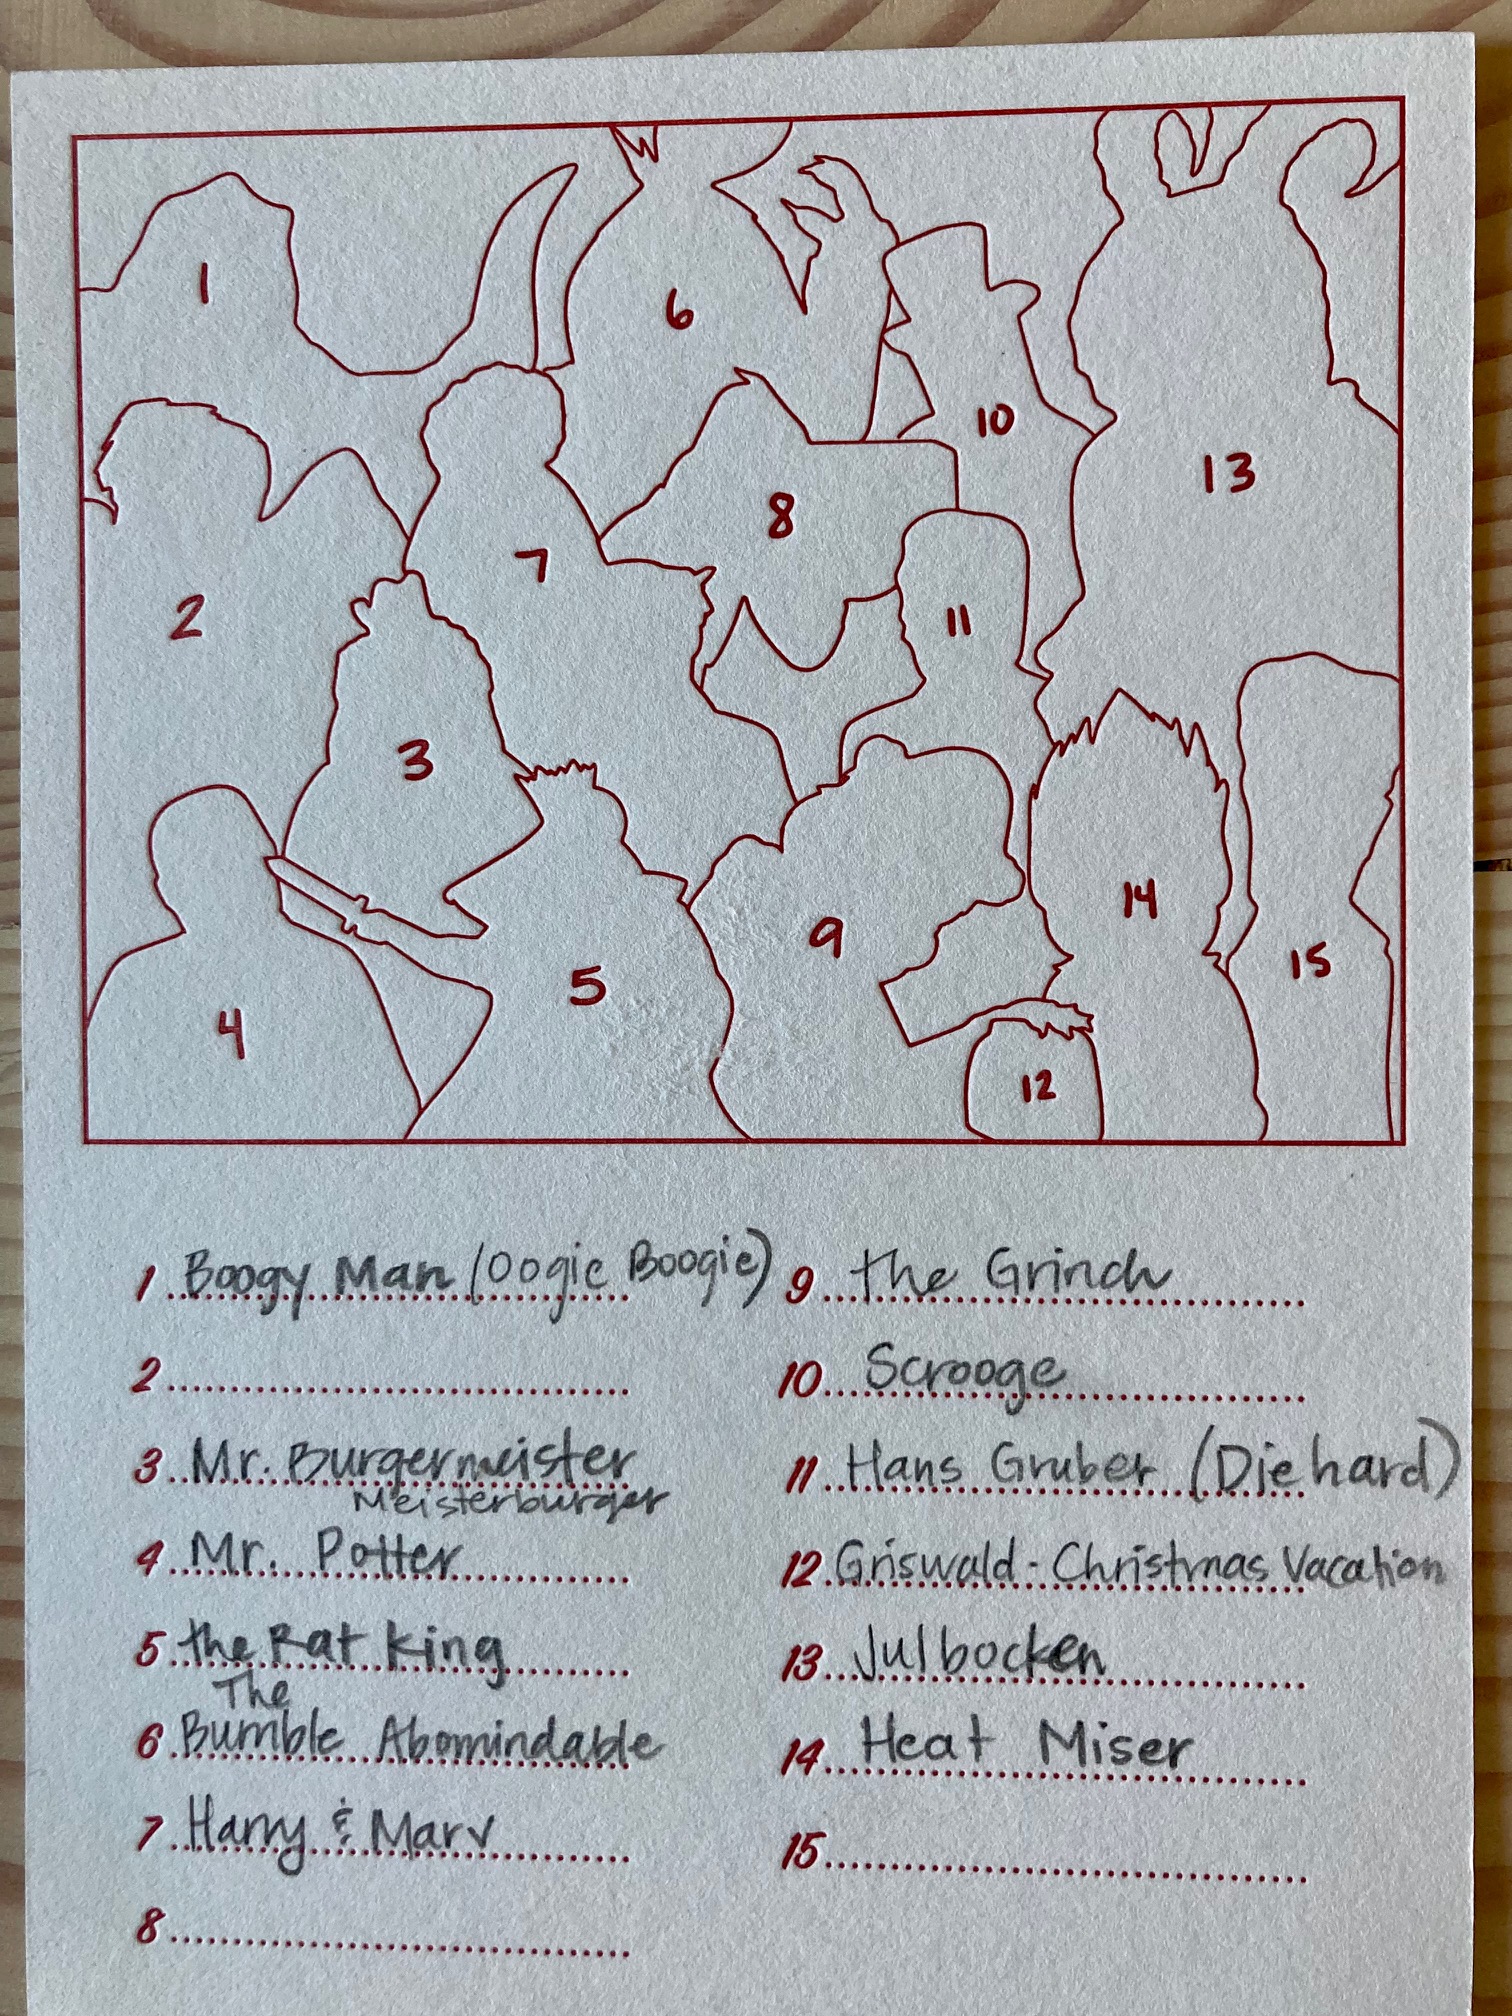 1
6
10
13
8
7
2
11
3
14
9
15
5
4
12
1 Boogy Man (Oogie Boogie)
2
3 Mr. Burgermeister
Meisterburger
4 Mr. Potter
5 the Rat King
The
6 Bumble Abomindable
7 Harry & Marv
8
9 the Grinch
10 Scrooge
11 Hans Gruber (Diehard)
12 Griswald - Christmas Vacation
13 Julbocken
14 Heat Miser
15